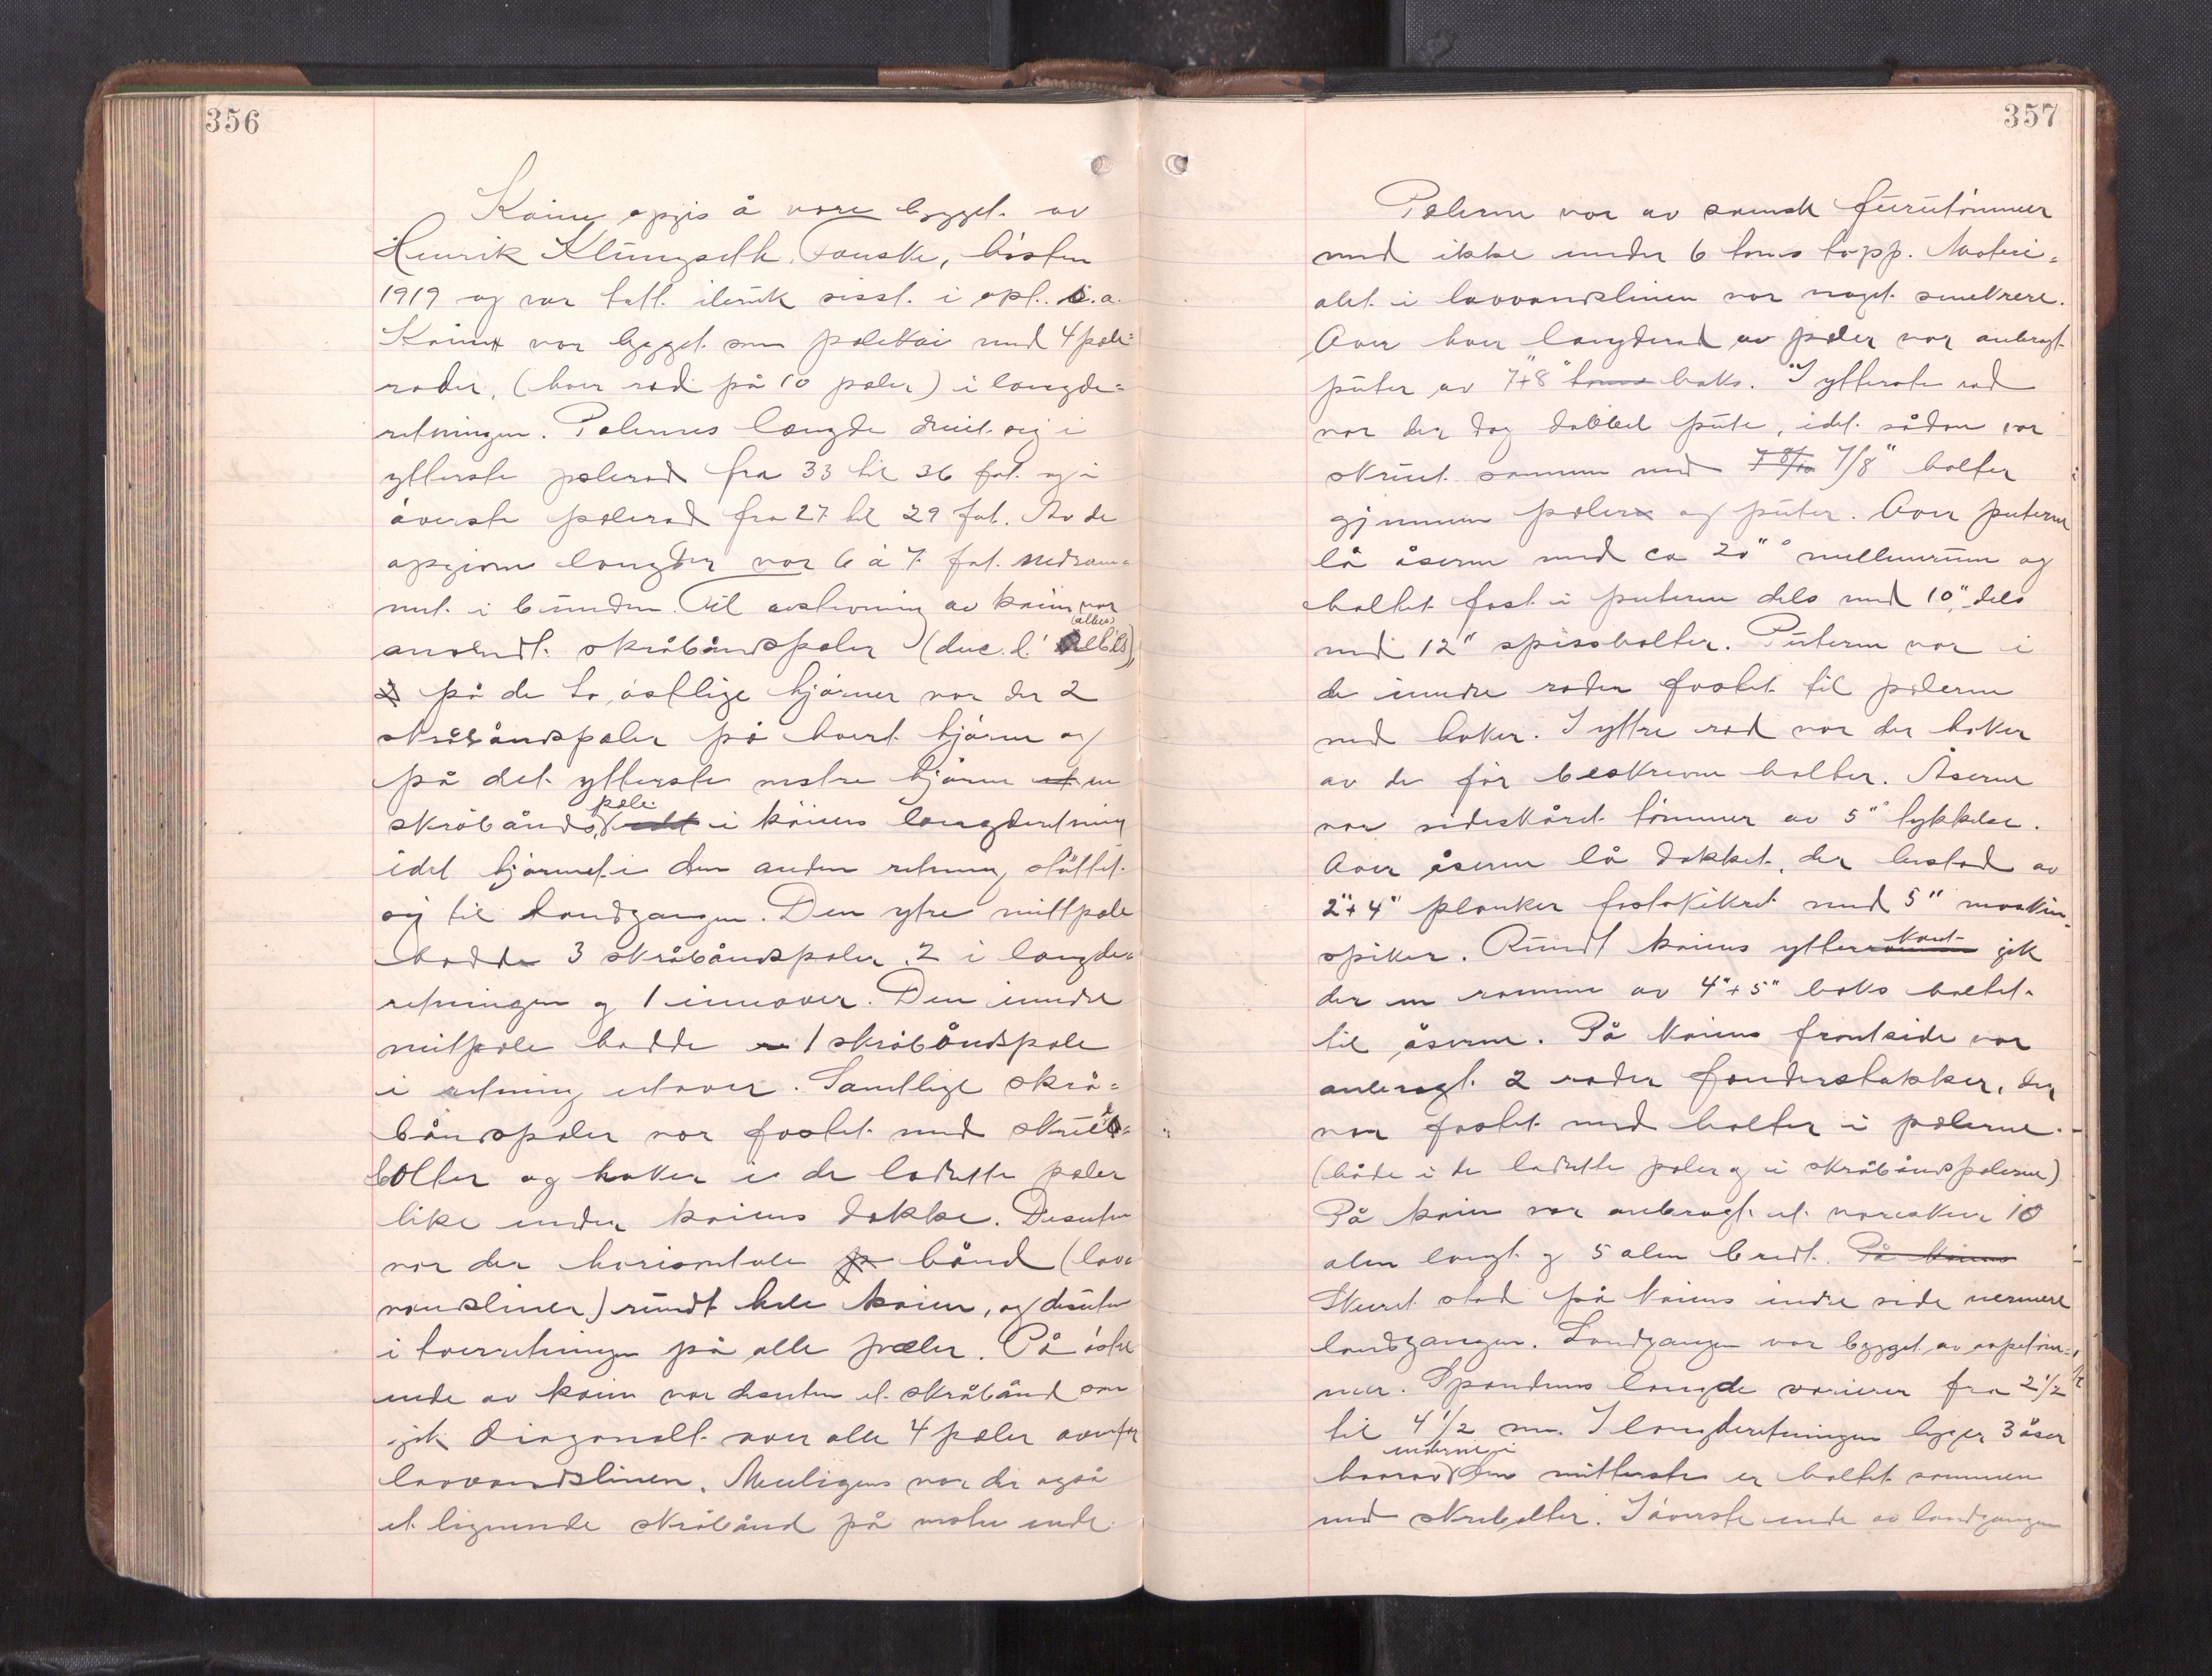 356
Kaien opgis å være bygget av
Henrik Klungseth, Fauske, høsten
1919 og var tatt ibruk sisst. i sept. s.a.
Kaien var bygget som pælekai med 4 pæle=
rader, (hver rad på 10 pæler) i længde=
retningen. Pælernes længde dreiet sig i
ytterste pælerad fra 33 til 36 fot og i
øverste pælerad fra 27 til 29 fot. Av de
opgivne længder var 6 à 7 fot nedram=
met i bunden. Til avstivning av kaien var
anvendt skråbåndspæler (duc. d' albes),
på de to østlige hjørner var der 2
skråbåndspæler på hvert hjørne og
på det ytterste vestre hjørne en
skråbåndspæle i kaiens længderetning
idet hjørnet i den anden retning støttet
sig til landgangen. Den ytre mittpæle
hadde 3 skråbåndspæler, 2 i længde=
retningen og 1 innover. Den inndre
mitpæle hadde 1 skråbåndspæle
i retning utover. Samtlige skrå=
båndspæler var fæstet med skrue=
bolter og haker i de lodrette pæler
like under kaiens dække. Desuten
var der horisontale bånd (lav=
vandslinen) rundt hele kaien, og desuten
i tverretningen på alle pæler. På østre
ende av kaien var desuten et skråbånd som
gik diagonalt over alle 4 pæler ovenfor
lavvandslinen. Muligens var der også
et lignende skråbånd på vestre ende.
357
Pælerne var av svensk furutømmer
med ikke under 6 toms topp. Materi=
alet i lavvandslinen var noget smekrere.
Over hver længderad av pæler var anbragt
puter av 7"+8" boks. I ytterste rad
var der dog dobbel pute, idet sådan var
skruet sammen med 7/8" bolter
gjennem pæler og puter. Over puterne
lå åserne med ca 20" mellemrum og
boltet fast i puterne dels med 10", dels
med 12" spissbolter. Puterne var i
de inndre rader fæstet til pælerne
med haker. I yttre rad var der haker
av de før beskrevne bolter. Åserne
var sideskåret tømmer av 5" tykkelse.
Over åserne lå dækket, der bestod av
2"+4" planker fastspikret med 5" maskin=
spiker. Rundt kaiens ytterkant gik
der en ramme av 4"+5" boks boltet
til åserne. På kaiens frontside var
anbragt 2 rader fenderstokker, der
var fæstet med bolter i pælerne.
(både i de lodrette pæler og i skråbåndspælerne)
På kaien var anbragt et vareskur 10
alen langt og 5 alen bredt. På kaiens
Skuret stod på kaiens indre side nærmere
landgangen. Landgangen var bygget av
mer. Spændenes længde varierer fra 2 1/2
til 4 1/2 m. I længderetningen ligger 3 åser
hvorav enderne i den mitterste er boltet sammen
med skrubolter. I øverste ende av landgangen